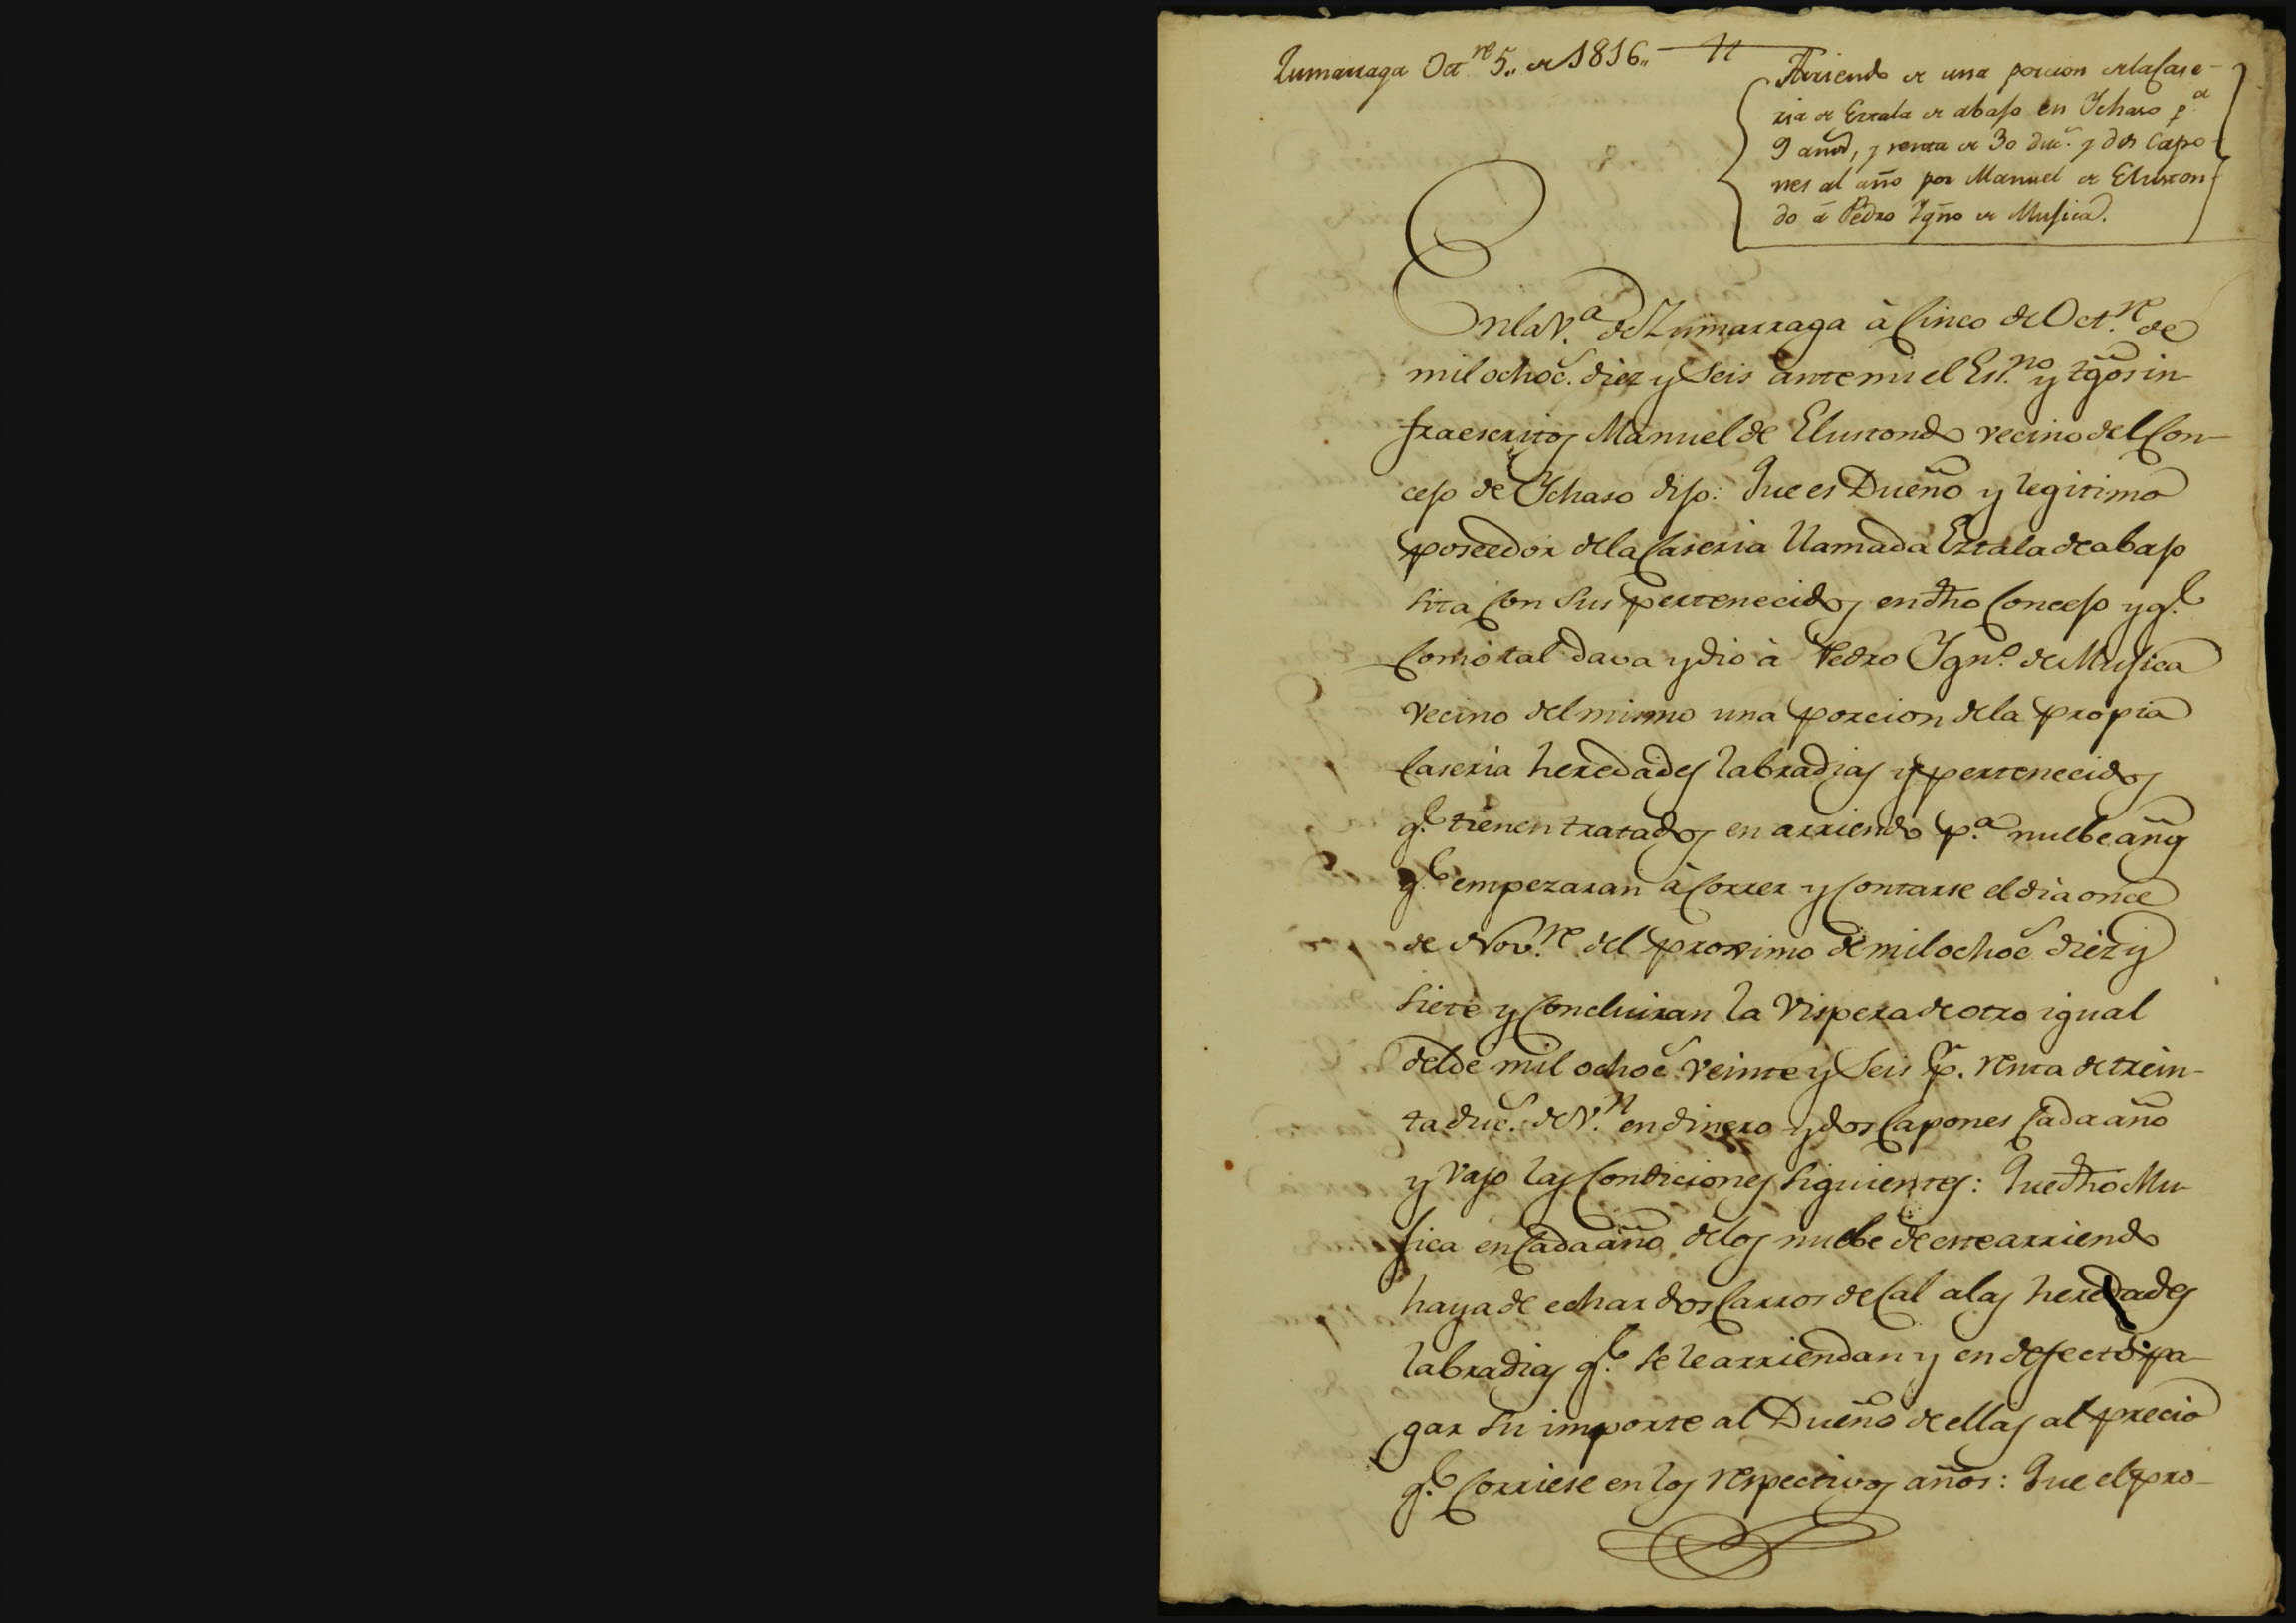 Zumarraga Oct.re 5,, de 1816,,
Arriendo de una porcion de la Case-
ria de Erzala de abajo en Ychaso p.a
9 años, y renta de 30 duc.s y dos Capo-
nes al año por Manuel de Eluston-
do à Pedro Ygno de Mujica.
En la V.a de Zumarraga à Cinco de Oct.re de
mil ochoc.s diez y Seis ante mi el Es.no y tgos in-
fraescritos Manuel de Elustondo vecino del Con-
cejo de Ychaso dijo: Que es Dueño y legitimo
poseedor de la Caseria llamada Erzala de abajo
sita Con Sus pertenecidos en dho Concejo y q.e
Como tal dava y dio à Pedro Ygn.o de Mujica
vecino del mismo una porcion de la propia
Caseria heredades labradias y pertenecidos
q.e tienen tratados en arriendo p.a nuebe años
q.e empezaran à Correr y Contarse el dia once
de Nov.re del proximo de mil ochoc.s diez y
siete y Concluiran la Vispera de otro igual
del de mil ochoc.s veinte y Seis p.r renta de trein-
ta duc.s de V.n en dinero y dos Capones Cada año
y vajo las Condiciones siguientes: Que dho Mu-
jica en Cada año de los nuebe de este arriendo
haya de echar dos Carros de Cal a las heredades
labradias q.e se le arriendan y en defecto pa-
gar su importe al Dueño de ellas al precio
q.e Corriese en los respectivos años: Que el pro-